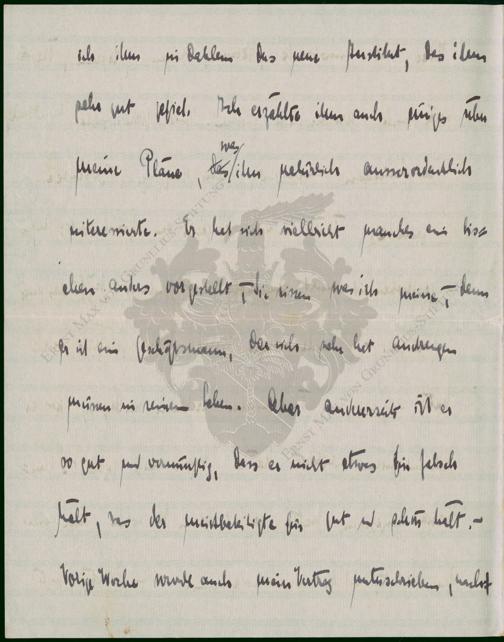 ich ihm in Dahlem das neue Institut, das ihm
sehr gut gefiel. Ich erzählte ihm auch einiges über
meine Pläne, was ihn natürlich ausserordentlich
interessierte. Er hat sich vielleicht manches ein bis-
chen anders vorgestellt, – Sie wissen was ich meine, – denn
er ist ein Geschäftsmann, der sich sehr hat anstrengen
müssen in seinem Leben. Aber andererseits ist er
so gut und vernünftig, dass er nicht etwas für falsch
hält, was der Meistbeteiligte für gut und schön hält. –
Vorige Woche wurde auch mein Vertrag unterschrieben,
ERNST MAX VON GRUNELIUS-STIFTUNG
ERNST MAX VON GRUNELIUS-STIFTUNG